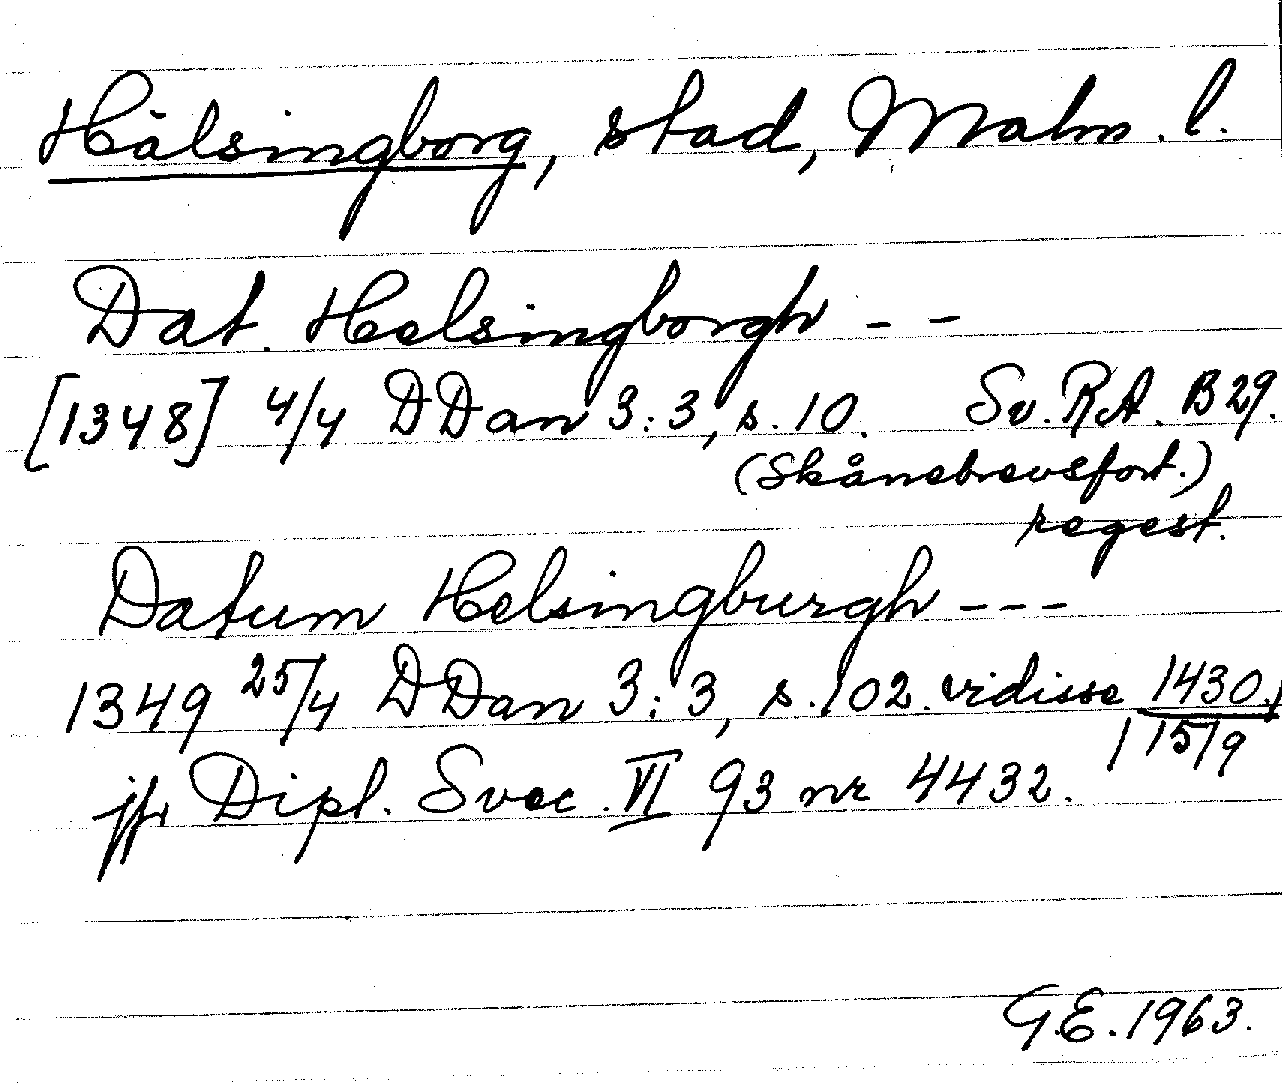 Hälsingborg, stad, Malm. l.
Dat. Helsingborgh - -
[1348] 4/4 DDan 3:3, s. 10. Sv. RA. B 29.
(Skånebrevsfört.)
regest.
Datum Helsingburgh - - -
1349 25/4 DDan 3:3, s. 102. vidisse 1430
15/9
jfr Dipl. Svec. VI 93 nr 4432.
G.E. 1963.